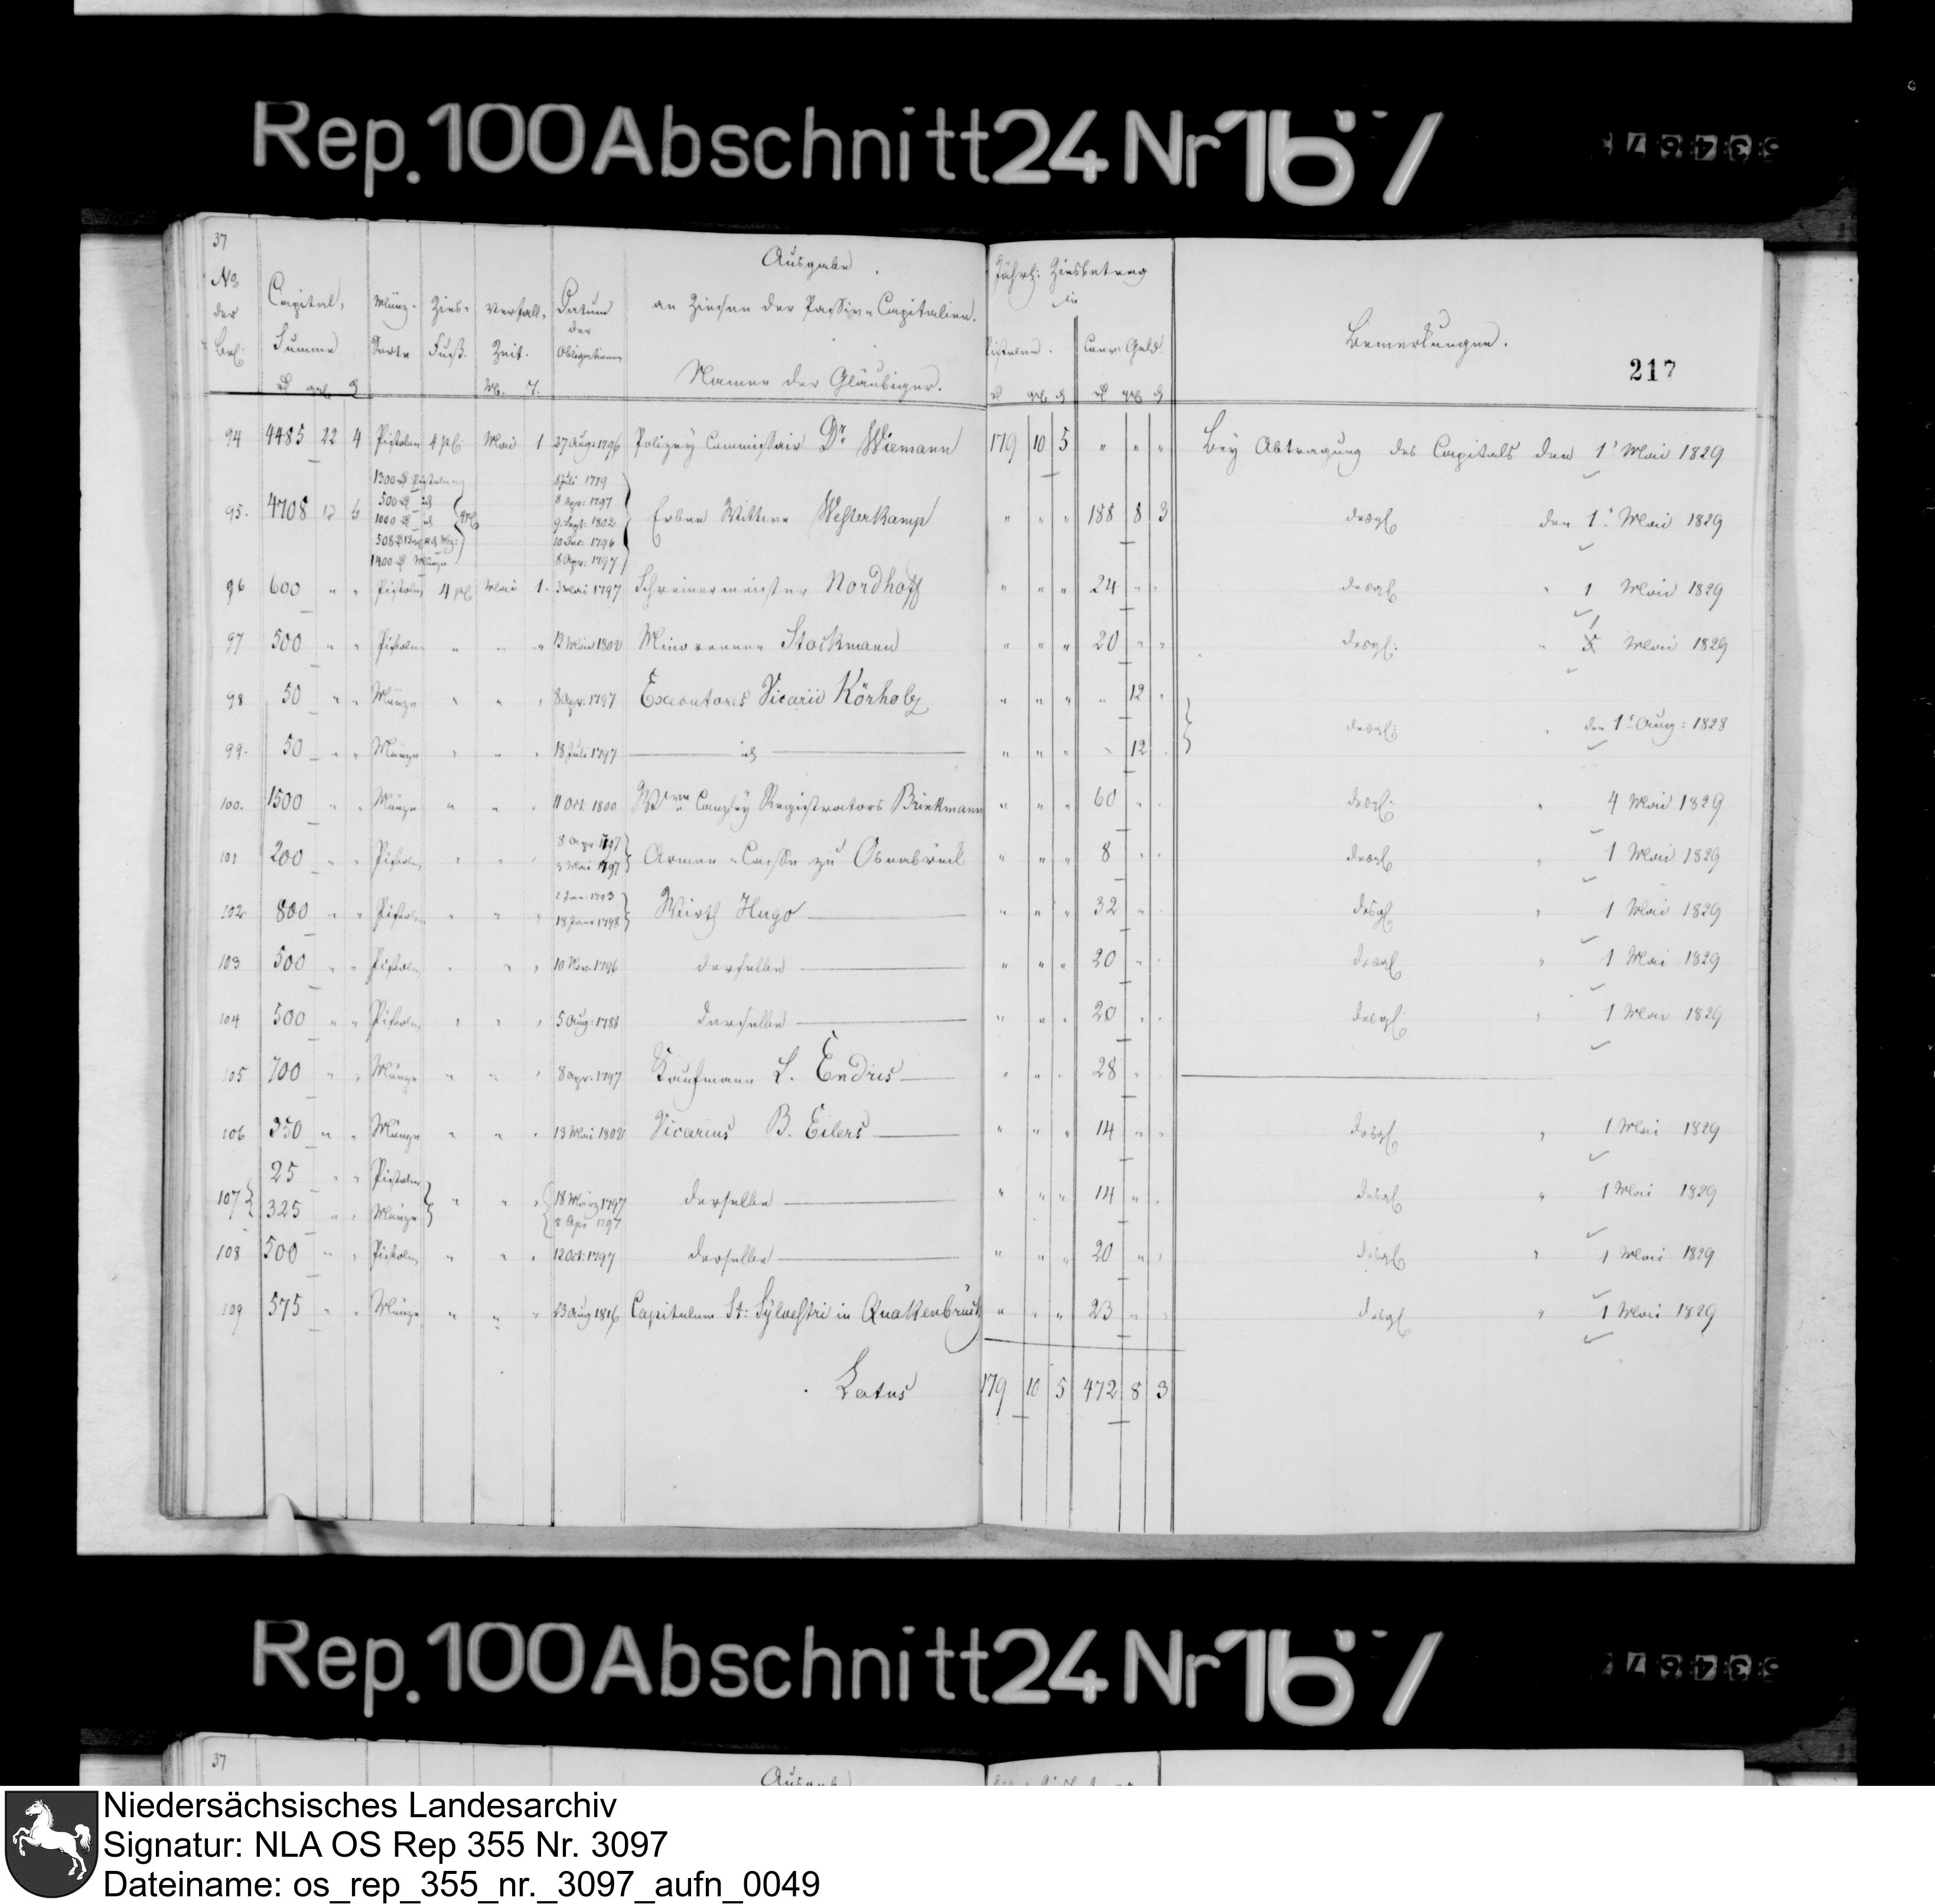 Rep. 100 Abschnitt 24 Nr 167
37
217
Ausgabe
an Zinsen der Passiva Capitalien.
No der Bel:
Capital, Summe
Münz-Sorte
Zins-Fuß.
Verfall-Zeit. M. T.
Datum der Obligationen
Namen der Gläubiger.
Jährl: Zinsbetrag in
Pistolen.
Conv: Geld
Bemerkungen.
94 4485 22 4 Pistolen 4 pC: Mai 1 27 Aug: 1796 Polizey Commissair Dr Wiemann 179 10 5 " " " Bey Abtragung des Capitals den 1' Mai 1829
1300 Pistolen 1779
500 id 8 Apr: 1797
95. 4708 12 6 1000 id 9. Sept: 1802 Erben Wittwe Westerkamp " " " 188 8 3 desgl den 1' Mai 1829
10 Dec: 1796
1400 Münze 8 Apr: 1797
96 600 " " Pistolen 4 pC Mai 1. 3 Mai 1797 Schreinermeister Nordhoff " " " 24 " " desgl " 1 Mai 1829
97 500 " " Pistolen " " " 12 Mai 1802 Minorennen Stockmann " " " 20 " " desgl: " 1 Mai 1829
98 50 " " Münze " " " 8 Apr: 1797 Executores Vicarii Körholz " " " " 12 "
desgl: " den 1' Aug: 1828
99. 50 " " Münze " " " 18 Juli 1797 id " " " " 12 "
100. 1500 " " Münze " " " 11 Oct. 1800 Wwe Canzley Registrators Brinkmann " " " 60 " " desgl: " 4 Mai 1829
8 Apr: 1797
101 200 " " Pistolen " " " 3 Mai 1797 Armen-Casse zu Osnabrück " " " 8 " " desgl " 1 Mai 1829
2 Jan: 1793
102 800 " " Pistolen " " " 18 Jan: 1798 Wirth Hugo " " " 32 " " desgl " 1 Mai 1829
103 500 " " Pistolen " " " 10 Nov. 1796 derselbe " " " 20 " " desgl " 1 Mai 1829
104 500 " " Pistolen " " " 5 Aug: 1788 derselbe " " " 20 " " desgl: " 1 Mai 1829
105 700 " " Münze " " " 8 Apr: 1797 Kaufmann L. Endris " " " 28 " "
106 350 " " Münze " " " 13 Mai 1802 Vicarius B. Eilers " " " 14 " " desgl " 1 Mai 1829
25 " " Pistolen 18 März 1797
107 325 " " Münze " " " 8 Apr 1797 derselbe " " " 14 " " desgl " 1 Mai 1829
108 500 " " Pistolen " " " 12 Oct: 1797 derselbe " " " 20 " " desgl " 1 Mai 1829
109 575 " " Münze " " " 23 Aug 1816 Capitulum St: Sylvestri in Quakenbrück " " " 23 " " desgl " 1 Mai 1829
Latus 179 10 5 472 8 3
Rep. 100 Abschnitt 24 Nr 167
37
Niedersächsisches Landesarchiv
Signatur: NLA OS Rep 355 Nr. 3097
Dateiname: os_rep_355_nr._3097_aufn_0049